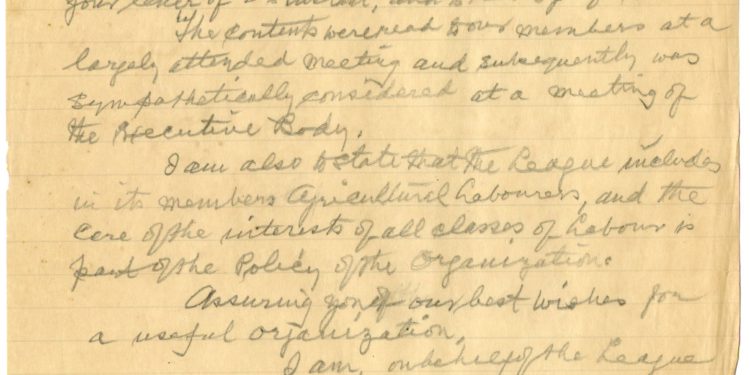 your letter of
The contents were read to our members at a
largely attended meeting and subsequently was
sympathetically considered at a meeting of
the Executive Body.
I am also to state that the League includes
in its members Agricultural Labourers, and the
care of the interests of all classes of Labour is
part of the Policy of the Organization.
Assuring you of our best wishes for
a useful organization,
I am, on behalf of the League